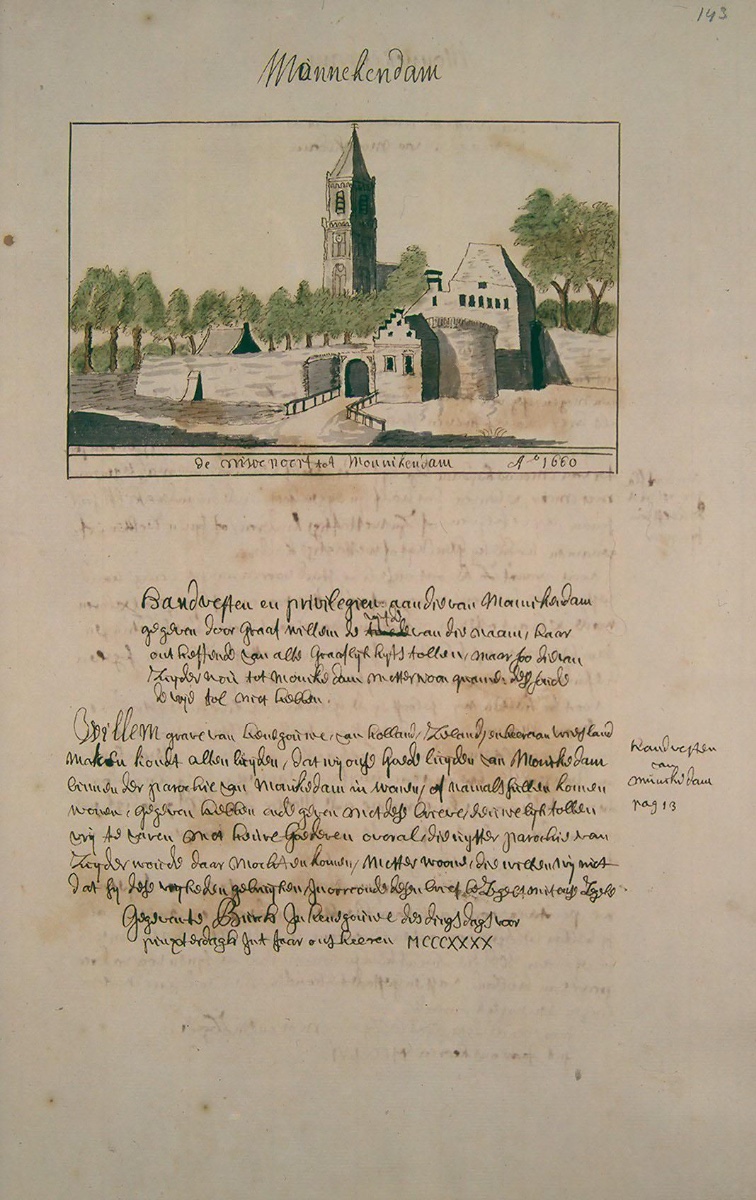 143
Monnekendam
de poort tot Monnikendam Ao 1660
Handvesten en privilegien aan die van Monnikendam
gegeven door Graaf willem de van die naam, haar
ontheffende van alle Graaflijkhyts tollen, maar soo die van
Zuyder tot Monikedam metterwoon quamen
tol niet hebben.
Willem grave van henegouwe, van holland, Zeland, ende van vriesland
maken kondt allen luyden, dat wij onse Goede luyden van Monikedam
binnen der parochie van Monikedam in wonen, of namals sullen komen
wonen, gegeven hebben ende geven met dese brieve, tollen
vrij te varen met heure Goederen overal, die uytter parochie van
Zuyder woude daar mochten komen, metter woone, die willen wij niet
dat sij dese vryheden gebruyken, In oorconde desen brief beZegelt met onse Zegele
Gegeven te In henegouwe des dingsdags voor
pinxterdagh Int Jaar ons heeren MCCCXXXX
Handvesten
van
munikedam
pag 13